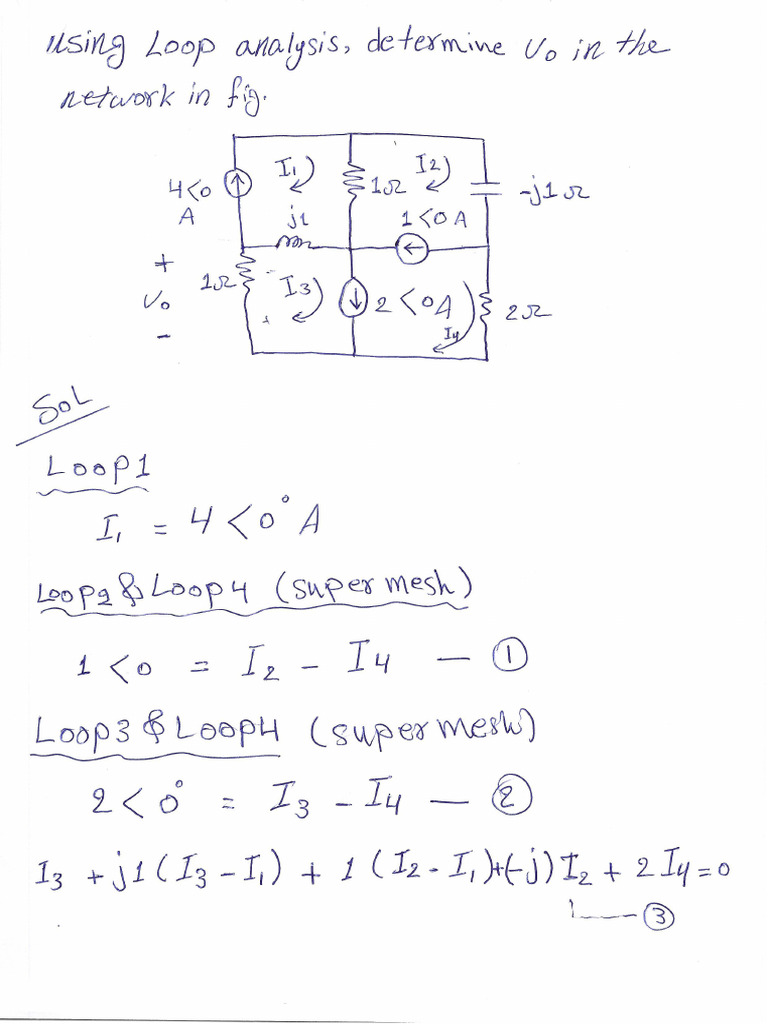 using Loop analysis, determine Vo in the
network in fig.
I1
I2
4<0
A
1Ω
-j1Ω
j1
1<0A
+
Vo
-
1Ω
I3
+
2<0A
I4
2Ω
SOL
Loop1
I1 = 4<0° A
Loop2 & Loop4 (super mesh)
1<0 = I2 - I4 — ①
Loop3 & Loop4 (super mesh)
2<0° = I3 - I4 — ②
I3 + j1(I3 - I1) + 1(I2 - I1)+(-j)I2 + 2I4=0
③